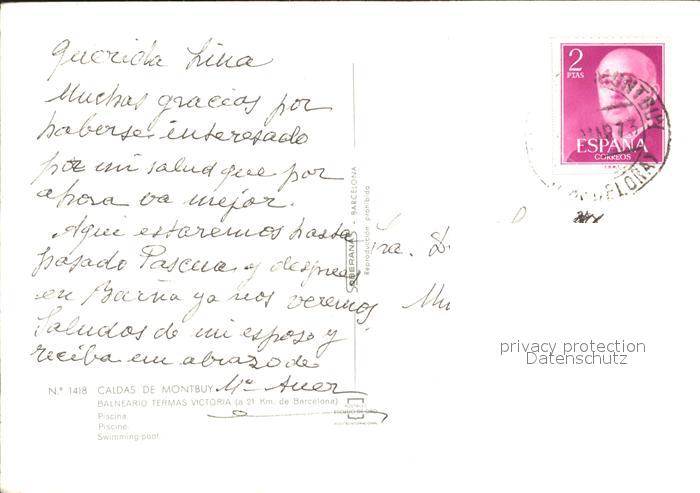 Querida Lina
Muchas gracias por
haberse interesado
por mi salud que por
ahora va mejor.
Aqui estaremos hasta
pasado Pascua y despues
en Barña ya nos veremos.
Saludos de mi esposo y
reciba un abrazo de
Mª Auer
Nº 1418 CALDAS DE MONTBUY
BALNEARIO TERMAS VICTORIA (a 21 Km. de Barcelona)
Piscina
Piscine
Swimming-pool
SOBERANAS - BARCELONA
Reproducción prohibida
ESCUDO DE ORO
2
PTAS
ESPAÑA
CORREOS
MONTBUY
MAR 73
Sra. D
Mu
privacy protection
Datenschutz